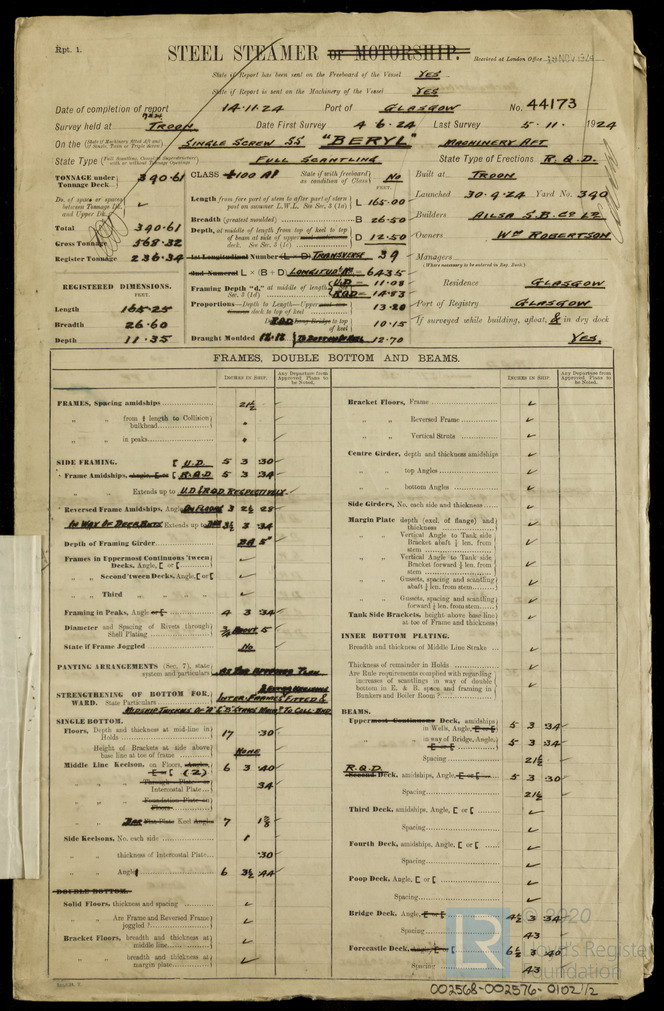 Rpt. 1.
STEEL STEAMER or MOTORSHIP.
Received at London Office 18 NOV 1924
State if Report has been sent on the Freeboard of the Vessel YES
State if Report is sent on the Machinery of the Vessel YES
Date of completion of report 14.11.24 Port of GLASGOW No. 44173
Survey held at TROON Date First Survey 4 6 24 Last Survey 5.11. 1924
On the (State if Machinery fitted Aft and if Single, Twin or Triple Screw) SINGLE SCREW SS "BERYL" MACHINERY AFT
State Type (Full Scantling, Complete Superstructure with or without Tonnage Openings) FULL SCANTLING State Type of Erections R.Q.D.
TONNAGE under Tonnage Deck 340.61
Do. of space or spaces between Tonnage Dk. and Upper Dk.
Total 340.61
Gross Tonnage 568.32
Register Tonnage 236.34
REGISTERED DIMENSIONS.
FEET.
Length 165.25
Breadth 26.60
Depth 11.35
CLASS 100 A1 State if with freeboard as condition of Class No
FEET.
Length from fore part of stem to after part of stern post on summer L.W.L. See Sec. 3 (1a) L 165.00
Breadth (greatest moulded) B 26.50
Depth, at middle of length from top of keel to top of beam at side of uppermost deck. See Sec. 3 (1c) D 12.50
1st Longitudinal Number (L × D) TRANSVERSE 39
2nd Numeral L × (B + D) LONGITUDL No = 6435
Framing Depth "d," at middle of length Sec. 3 (1d) U.D = 11.08
RQD = 14.83
Proportions—Depth to Length—Upper deck to top of keel 13.20
Do. RQD Long Bridge to top of keel 10.15
Draught Moulded 12.12 TO BOTTOM OF KEEL 12.70
Built at TROON
Launched 30.4.24 Yard No. 390
Builders AILSA S.B. Co Ld
Owners WM ROBERTSON
Managers
(Where necessary to be entered in Reg. Book.)
Residence GLASGOW
Port of Registry GLASGOW
If surveyed while building, afloat, & in dry dock
YES.
FRAMES, DOUBLE BOTTOM AND BEAMS.
INCHES IN SHIP.
Any Departure from Approved Plans to be Noted.
INCHES IN SHIP.
Any Departure from Approved Plans to be Noted.
FRAMES, Spacing amidships 21½
" " from ⅗ length to Collision bulkhead "
" " in peaks "
SIDE FRAMING. [ U.D. 5 3 .30
Frame Amidships, Angle, [ or [ R.Q.D 5 3 .34
" " Extends up to U.D & RQD RESPECTIVELY.
Reversed Frame Amidships, Angle ON FLOORS 3 2½ .28
IN WAY OF DEEP TANK Extends up to 3½ 3 .34
Depth of Framing Girder BA 5"
Frames in Uppermost Continuous 'tween Decks, Angle, [ or [
" " Second 'tween Decks, Angle, [ or [
" " Third " " " "
Framing in Peaks, Angle or [ 4 3 .34
Diameter and Spacing of Rivets through Shell Plating ¾ ABOUT 5
State if Frame Joggled No
PANTING ARRANGEMENTS (Sec. 7), state system and particulars AS PER APPROVED PLAN
STRENGTHENING OF BOTTOM FORWARD. State Particulars
INTER. FRAMES FITTED &
SINGLE BOTTOM.
Floors, Depth and thickness at mid-line in Holds 17 .30
Height of Brackets at side above base line at toe of frame NONE
Middle Line Keelson, on Floors, Angles, [ or [ (2) 6 3 .40
" " Through Plate or Intercostal Plate .34
" " Foundation Plate on Floors
BAR Flat Plate Keel Angles 7 1⅜
Side Keelsons, No. each side 1
" " thickness of Intercostal Plate .30
" " Angle 6 3½ .44
DOUBLE BOTTOM.
Solid Floors, thickness and spacing
" " Are Frame and Reversed Frame joggled?
Bracket Floors, breadth and thickness at middle line
" " breadth and thickness at margin plate
Bracket Floors, Frame
" " Reversed Frame
" " Vertical Struts
Centre Girder, depth and thickness amidships
" " top Angles
" " bottom Angles
Side Girders, No. each side and thickness
Margin Plate depth (excl. of flange) and thickness
" " Vertical Angle to Tank side Bracket abaft ¼ len. from stem
" " Vertical Angle to Tank side Bracket forward ¼ len. from stem
" " Gussets, spacing and scantling abaft ¼ len. from stem
" " Gussets, spacing and scantling forward ¼ len. from stem
Tank Side Brackets, height above base line at toe of Frame and thickness
INNER BOTTOM PLATING.
Breadth and thickness of Middle Line Strake
Thickness of remainder in Holds
Are Rule requirements complied with regarding increases of scantlings in way of double bottom in E. & B. space and framing in Bunkers and Boiler Room?
BEAMS.
Uppermost Continuous Deck, amidships in Wells, Angle, [ or [ 5 3 .34
" " in way of Bridge, Angle, [ or [ 5 3 .34
Spacing 21½
R.Q.D.
Second Deck, amidships, Angle, [ or [ 5 3 .30
Spacing 21½
Third Deck, amidships, Angle, [ or [
Spacing
Fourth Deck, amidships, Angle, [ or [
Spacing
Poop Deck, Angle, [ or [
Spacing
Bridge Deck, Angle, [ or [ 4½ 3 .34
Spacing 43
Forecastle Deck, Angle, [ or [ 6½ 3 .40
Spacing 43
LR © 2020 Lloyd's Register Foundation
002568-002576-0102 1/2